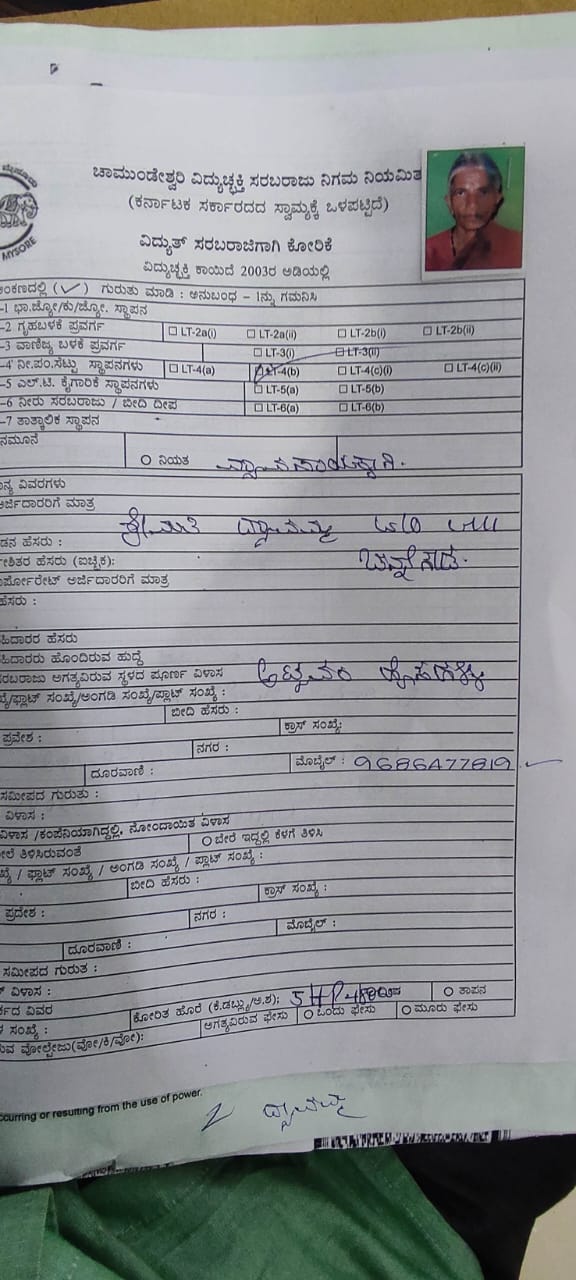 MYSORE
ಚಾಮುಂಡೇಶ್ವರಿ ವಿದ್ಯುಚ್ಛಕ್ತಿ ಸರಬರಾಜು ನಿಗಮ ನಿಯಮಿತ
(ಕರ್ನಾಟಕ ಸರ್ಕಾರದದ ಸ್ವಾಮ್ಯಕ್ಕೆ ಒಳಪಟ್ಟಿದೆ)
ವಿದ್ಯುತ್ ಸರಬರಾಜಿಗಾಗಿ ಕೋರಿಕೆ
ವಿದ್ಯುಚ್ಛಕ್ತಿ ಕಾಯಿದೆ 2003ರ ಅಡಿಯಲ್ಲಿ
ಅಂಕಣದಲ್ಲಿ (✓) ಗುರುತು ಮಾಡಿ : ಅನುಬಂಧ - 1ನ್ನು ಗಮನಿಸಿ
-1 ಭಾ.ಜ್ಯೋ/ಕು/ಜ್ಯೋ. ಸ್ಥಾಪನ
-2 ಗೃಹಬಳಕೆ ಪ್ರವರ್ಗ ☐ LT-2a(i) ☐ LT-2a(ii) ☐ LT-2b(i) ☐ LT-2b(ii)
-3 ವಾಣಿಜ್ಯ ಬಳಕೆ ಪ್ರವರ್ಗ ☐ LT-3(i) ☐ LT-3(ii)
-4 ನೀ.ಪಂ.ಸೆಟ್ಟು ಸ್ಥಾಪನಗಳು ☐ LT-4(a) ☐ LT-4(b) ☐ LT-4(c)(i) ☐ LT-4(c)(ii)
-5 ಎಲ್.ಟಿ. ಕೈಗಾರಿಕೆ ಸ್ಥಾಪನಗಳು ☐ LT-5(a) ☐ LT-5(b)
-6 ನೀರು ಸರಬರಾಜು / ಬೀದಿ ದೀಪ ☐ LT-6(a) ☐ LT-6(b)
-7 ತಾತ್ಕಾಲಿಕ ಸ್ಥಾಪನ
ನಮೂನೆ
○ ನಿಯತ
ವಿವರಗಳು
ಅರ್ಜಿದಾರರಿಗೆ ಮಾತ್ರ
ಶ್ರೀಮತಿ
ಹೆಸರು :
ಹೆಸರು (ಐಚ್ಛಿಕ):
ಕಾರ್ಪೋರೇಟ್ ಅರ್ಜಿದಾರರಿಗೆ ಮಾತ್ರ
ಹೆಸರು :
ಹೆಸರು
ಹೊಂದಿರುವ ಹುದ್ದೆ
ಸರಬರಾಜು ಅಗತ್ಯವಿರುವ ಸ್ಥಳದ ಪೂರ್ಣ ವಿಳಾಸ
ಫ್ಲಾಟ್ ಸಂಖ್ಯೆ/ಅಂಗಡಿ ಸಂಖ್ಯೆ/ಪ್ಲಾಟ್ ಸಂಖ್ಯೆ :
ಬೀದಿ ಹೆಸರು : ಕ್ರಾಸ್ ಸಂಖ್ಯೆ:
ಪ್ರವೇಶ : ನಗರ :
ದೂರವಾಣಿ : ಮೊಬೈಲ್ : 9686477819
ಸಮೀಪದ ಗುರುತು :
ವಿಳಾಸ :
ವಿಳಾಸ /ಕಂಪೆನಿಯಾಗಿದ್ದಲ್ಲಿ, ನೋಂದಾಯಿತ ವಿಳಾಸ
ಮೇಲೆ ತಿಳಿಸಿರುವಂತೆ ○ ಬೇರೆ ಇದ್ದಲ್ಲಿ ಕೆಳಗೆ ತಿಳಿಸಿ
/ ಫ್ಲಾಟ್ ಸಂಖ್ಯೆ / ಅಂಗಡಿ ಸಂಖ್ಯೆ / ಪ್ಲಾಟ್ ಸಂಖ್ಯೆ :
ಬೀದಿ ಹೆಸರು : ಕ್ರಾಸ್ ಸಂಖ್ಯೆ :
ಪ್ರದೇಶ : ನಗರ :
ದೂರವಾಣಿ : ಮೊಬೈಲ್ :
ಸಮೀಪದ ಗುರುತ :
ವಿಳಾಸ :
ವಿವರ ಕೋರಿತ ಹೊರೆ (ಕೆ.ಡಬ್ಲ್ಯು/ಅ.ಶ): 5HP ○ ತಾಪನ
ಸಂಖ್ಯೆ : ಅಗತ್ಯವಿರುವ ಫೇಸು ○ ಒಂದು ಫೇಸು ○ ಮೂರು ಫೇಸು
ವೋಲ್ಟೇಜು(ವೋ/ಕಿ/ವೋ):
occurring or resulting from the use of power.